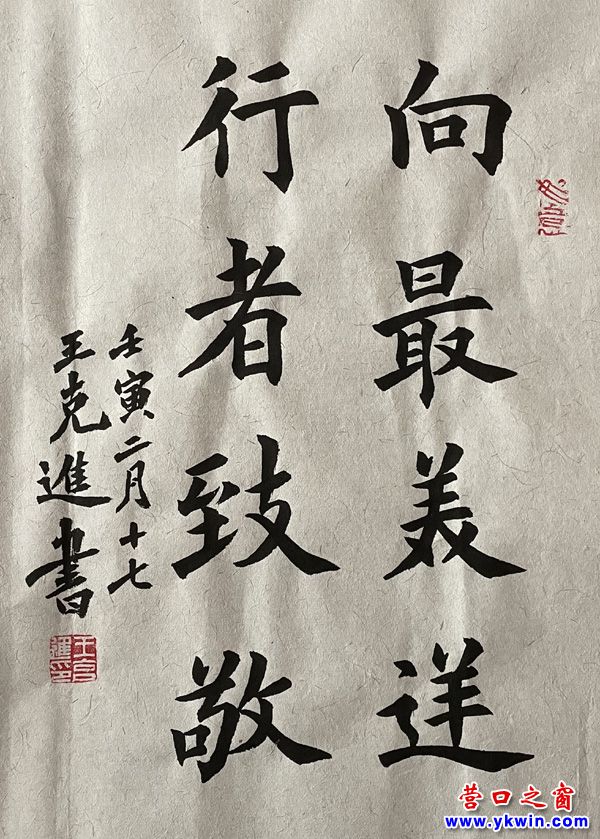 向最美逆
行者致敬
壬寅二月十七
王克進書
王克
進印
营口之窗
www.ykwin.com